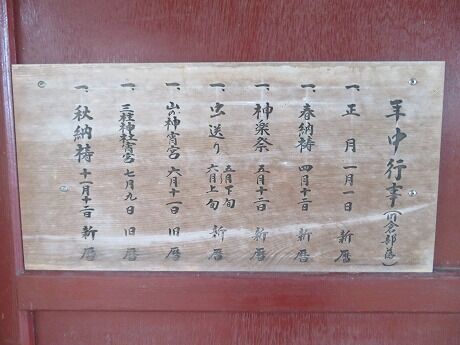 年中行事(川倉部落)
一、正月 一月一日 新暦
一、春納祷 四月十二日 新暦
一、神楽祭 五月十二日 新暦
一、虫送り 五月下旬 六月上旬 新暦
一、山の神宵宮 六月十一日 旧暦
一、三柱神社宵宮 七月九日 旧暦
一、秋納祷 十一月十二日 新暦